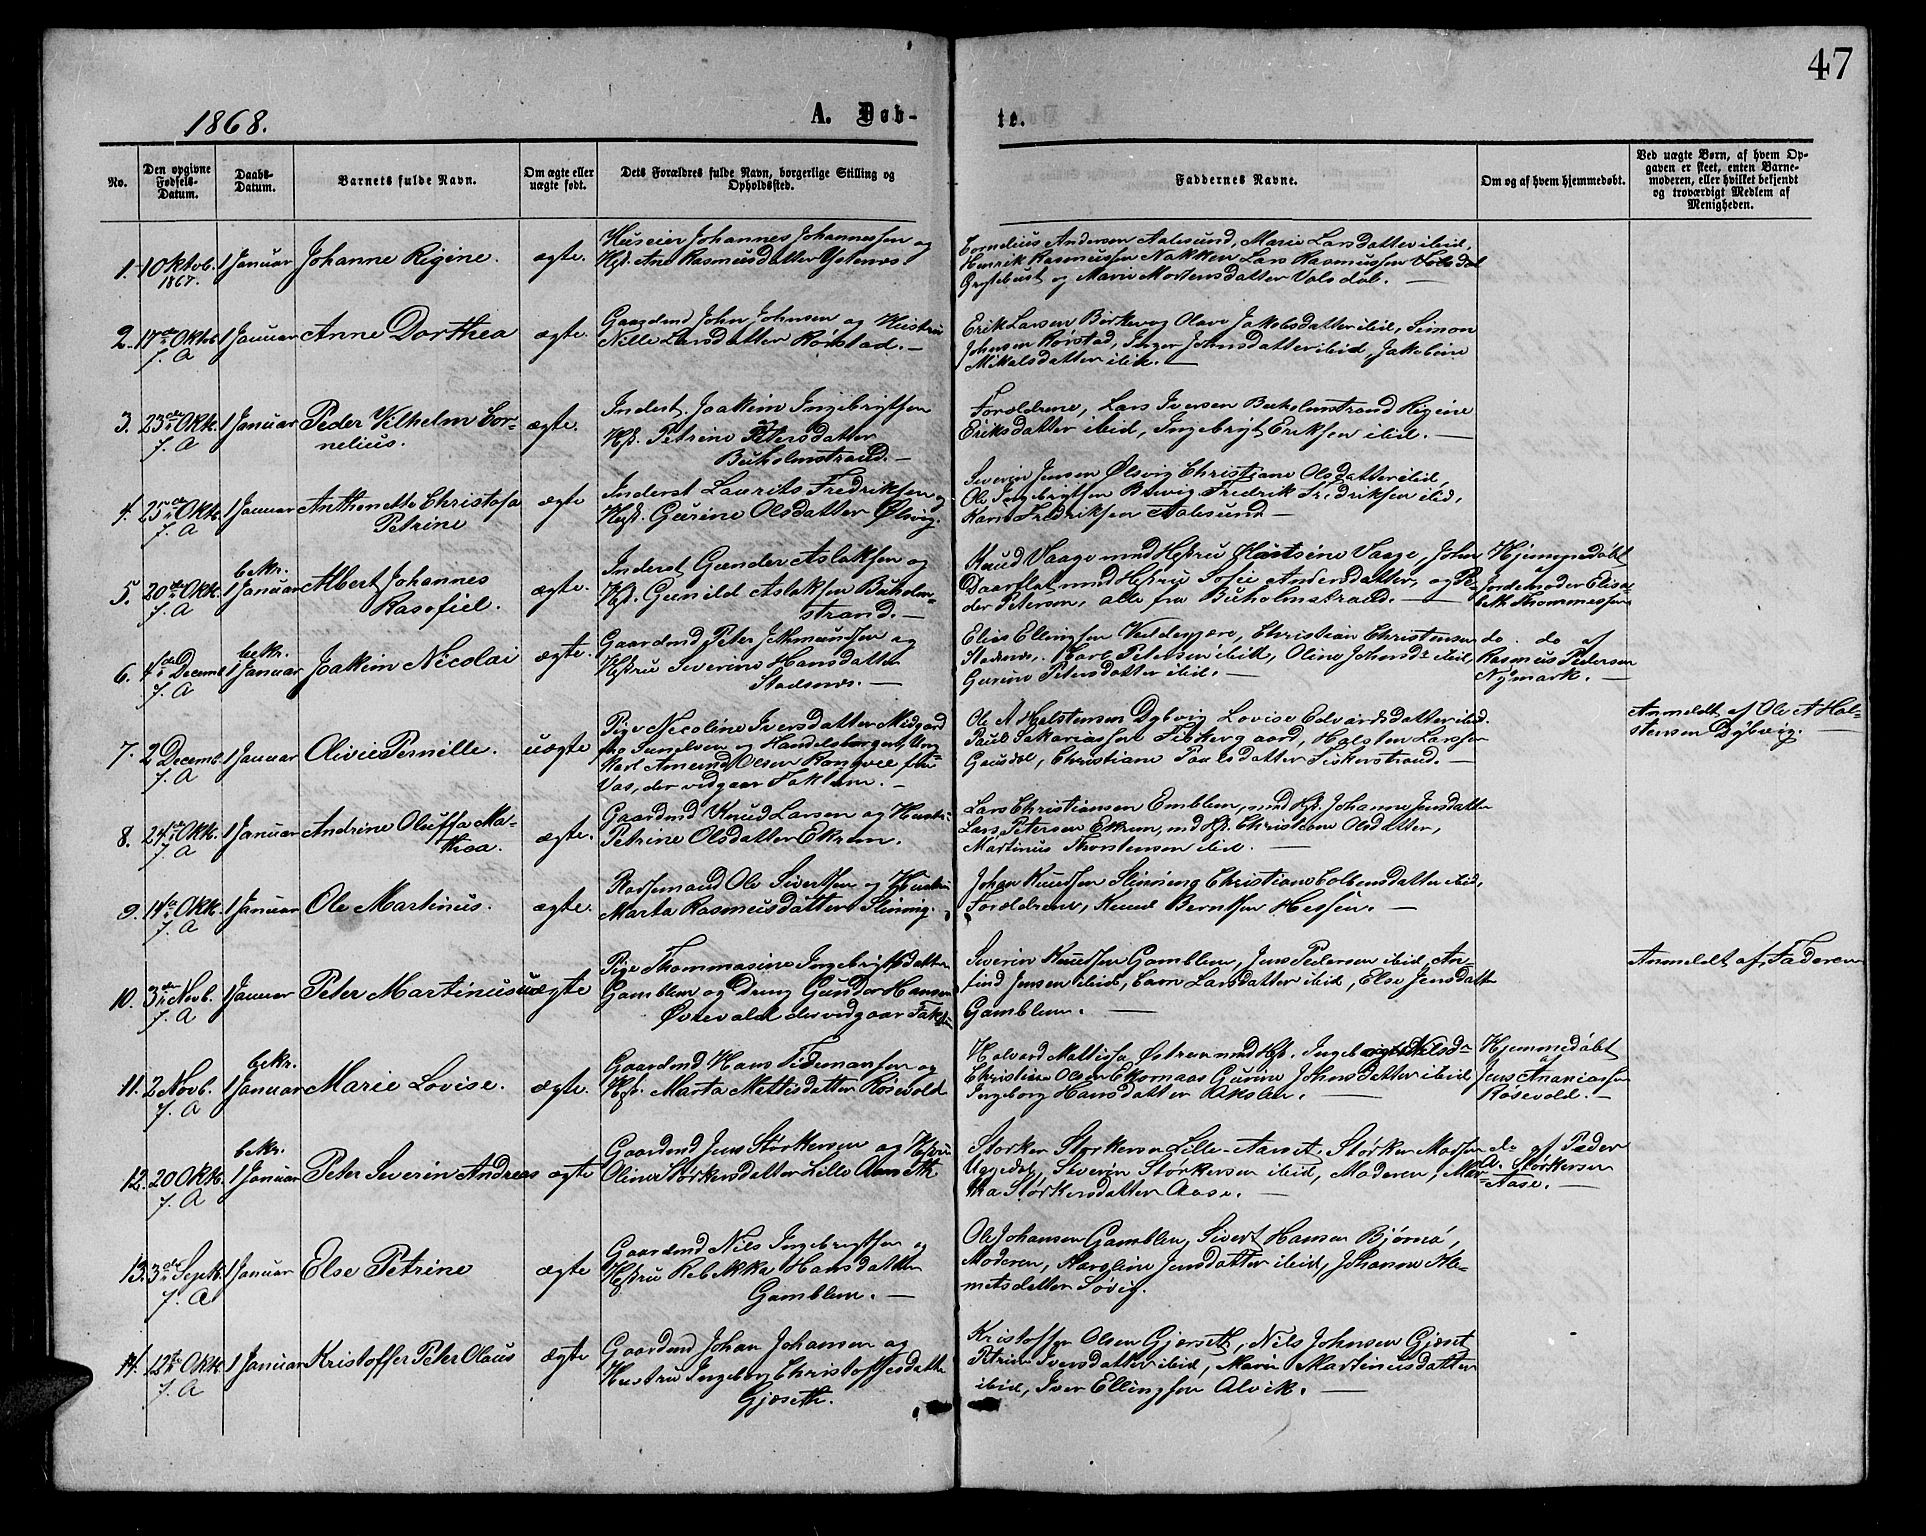 47
1868.
A. Døb-
te.
No.
Den opgivne Fødsels-Datum.
Daabs-Datum.
Barnets fulde Navn.
Om ægte eller uægte født.
Dets Forældres fulde Navn, borgerlige Stilling og Opholdssted.
Faddernes Navne.
Om og af hvem hjemmedøbt.
Ved uægte Børn, af hvem Opgaven er skeet, enten Barnemoderen, eller hvilket bekjendt og troværdigt Medlem af Menigheden.
1. 1 Oktob. 1867. 1 Januar Johanne Rigine. ægte.
Huseier Johannes Johannessen og
Hst. Ane Rasmusdatter Ystenes.
Cornelius Andersen Aalesund, Marie Larsdatter ibid,
Henrik Rasmussen Nakken Lars Rasmussen Volsdal
og Marie Mortensdatter Volsdal. —
2. 17de Oktob f. A 1 Januar Anne Dorthea ægte.
Gaardmd John Johnsen og Hustru
Nille Larsdatter Rørstad. —
Erik Larsen Borkevog Olave Jakobsdatter ibid, Simon
Johnsen Rørstad, Inger Johnsdatter ibid, Jakobine
Mikalsdatter ibid. —
3. 23de Okt. f. A 1 Januar Peder Vilhelm Cor-
nelius. ægte.
Inderst. Joakim Ingebrigtsen
Hst. Petrine Petersdatter
Buholmstrand. —
Forældrene, Lars Iversen Buholmstrand Regine
Eriksdatter ibid, Ingebrigt Eriksen ibid. —
4. 25de Okt. f. A 1 Januar Anthonette Christofa
Petrine ægte
Inderst Laurits Fredriksen og
Hst. Gurine Olsdatter Ølsvig.
Severin Jensen Ølsvig Christiane Olsdatter ibid,
Ole Ingebrigtsen Fredrik Fredriksen ibid,
Karn Fredriksen Aalesund —
5. 20de Okt. f. A bekr. 1 Januar Albert Johannes
Rasofiel. ægte.
Inderst Gunder Aslaksen og
Hst. Gunild Aslaksen Buholm-
strand. —
Knud Vaage med Hstru Vaage, John
med Hstru Sofie Andersdatter, og Pe-
der Petersen, alle fra Buholmstrand. —
Hjemmedøbt
af
Jordemoder Elisa-
beth Thommessen
6. 4de Decemb f. A bekr. 1 Januar Joakim Nicolai ægte.
Gaardmd Peter og
Hstru Severine Hansdatter
Stadsnes. —
Elias Ellingsen Christian Christensen
Stadsnes, Karl Petersen ibid, Oline Johnsdr ibid,
Gurine Petersdatter ibid. —
do. do af
Rasmus Pedersen
Nymark. —
7. 2 Decemb. f. A 1 Januar Olivie Pernille. uægte
Pige Nicoline Iversdatter Midgard
paa Sunelven og Handelsborger, Ung-
karl Amund Olsen Rangvee fra
Vos, der vedgaar Faklem. —
Ole A Halstensen Dybvig Lovise Edvardsdatter ibid.
Paul Sakariassen Fiskergaard, Halsten Larssen
Gausdal, Christiane Paulsdatter Fiskerstrand. —
Anmeldt af Ole A Hal-
stensen Dybvig. —
8. 24de Okt. f. A 1 Januar Andrine Oluffa Ma-
thea. ægte.
Gaardmd Knud Larsen og Hustru
Petrine Olsdatter Ekrem.
Lars Christiansen Emblem, med Hst. Johanne Jensdatter
Lars Petersen Ekrem, md Hst. Christiane Olsdatter,
Martinus Thorstensen ibid. —
9. 14de Okt. f. A 1 Januar Ole Martinus. ægte.
Pladsemand Ole Sivertsen og Hustru
Marta Rasmusdatter Slinning.
Johan Knudsen Slinning Christiane Colbensdatter ibid,
Forældrene, Knud Berntsen Hessen. —
10. 3de Novb. f. A 1 Januar Peter Martinus uægte
Pige Thommasine Ingebrigtsdatter
Gamblem og Dreng Gunder Hansen
Øvrevald der vedgaar Faklem
Severin Knudsen Gamblem, Jens Pedersen ibid, An-
find Jensen ibid, Larsdatter ibid, Else Jensdatter
Gamblem. —
Anmeldt af Faderen
11. 2 Novb. f. A bekr. 1 Januar Marie Lovise. ægte.
Gaardmd Hans Tidemansen og
Hst. Marta Mattisdatter Røsevold
Halvard Mattissn Østrem med Hst. Nilsdr
Christian Olsen Ekornaas Gurine Johnsdatter ibid
Ingeborg Hansdatter Akslen. —
Hjemmedøbt
af
Jens Ananiassen
Røsevold. —
12. 20 Okt. f. A bekr. 1 Januar Peter Severin Andreas ægte
Gaardmd Jens Størkersen og Hstru
Oline Størkersdatter Lille Aanseth.
Storker Storkersen Lille-Aanset, Størker Madsen
Uggedal, Severin Størkersen ibid, Moderen, Mar-
tha Størkersdatter Aase. —
do af Peder
A. Størkersen
Aase. —
13. 3de Septb. f. A 1 Januar Else Petrine ægte
Gaardmd Nils Ingebrigtsen og
Hstru Rebekka Hansdatter
Gamblem. —
Ole Johansen Gamblem, Sivert Hansen Bjørnø,
Moderen, Karoline Jensdatter ibid, Johanne Kle-
metsdatter Søvig.
14. 12te Okt. f. A 1 Januar Kristoffer Peter Olaus ægte
Gaardmd Johan Johansen og
Hustru Ingeborg Christoffersdatter
Gjøseth.
Kristoffer Olsen Gjørseth, Nils Johnsen Gjøset
Petrine Iversdatter ibid, Marie Martinusdatter
ibid, Iver Ellingsen Alvik. —